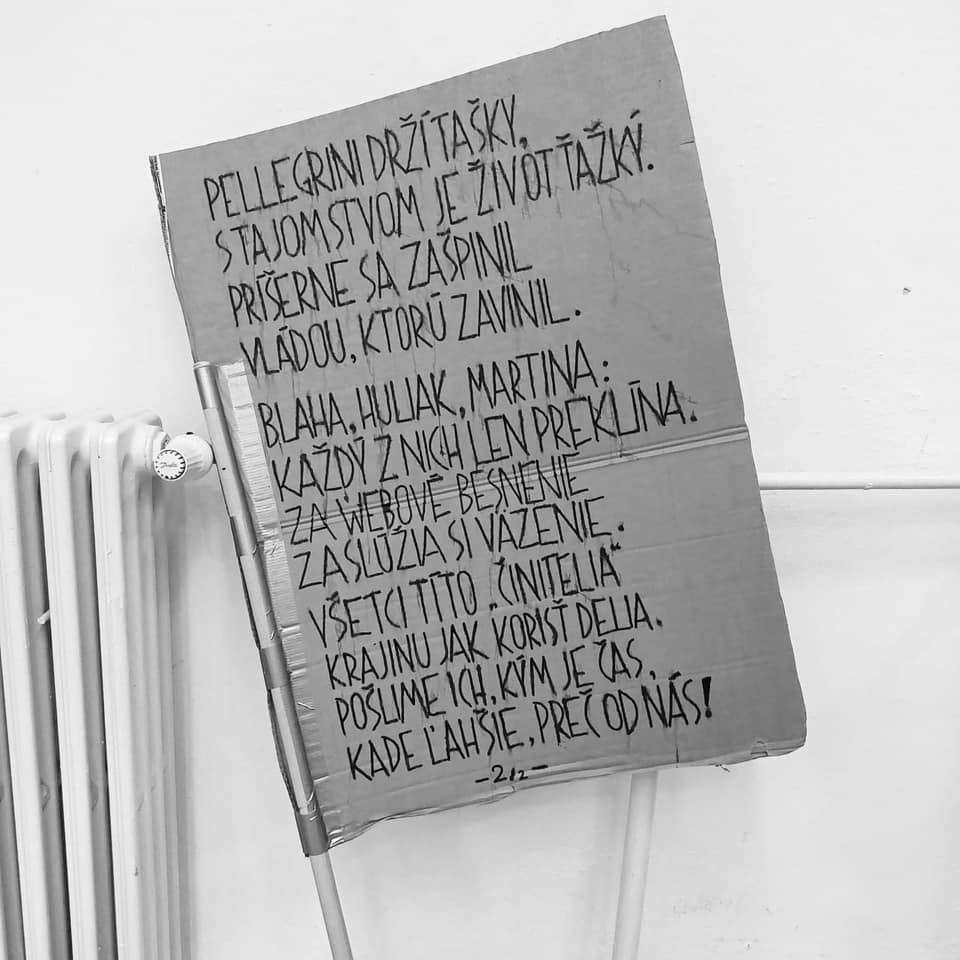 PELLEGRINI DRŽÍ TAŠKY,
S TAJOMSTVOM JE ŽIVOT ŤAŽKÝ.
PRÍŠERNE SA ZAŠPINIL
VLÁDOU, KTORÚ ZAVINIL.
BLAHA, HULIAK, MARTINA:
KAŽDÝ Z NICH LEN PREKLÍNA.
ZA WEBOVÉ BESNENIE
ZASLÚŽIA SI VÄZENIE.
VŠETCI TÍTO „ČINITELIA“
KRAJINU JAK KORISŤ DELIA.
POŠLIME ICH, KÝM JE ČAS,
KADE ĽAHŠIE, PREČ OD NÁS!
Danfoss